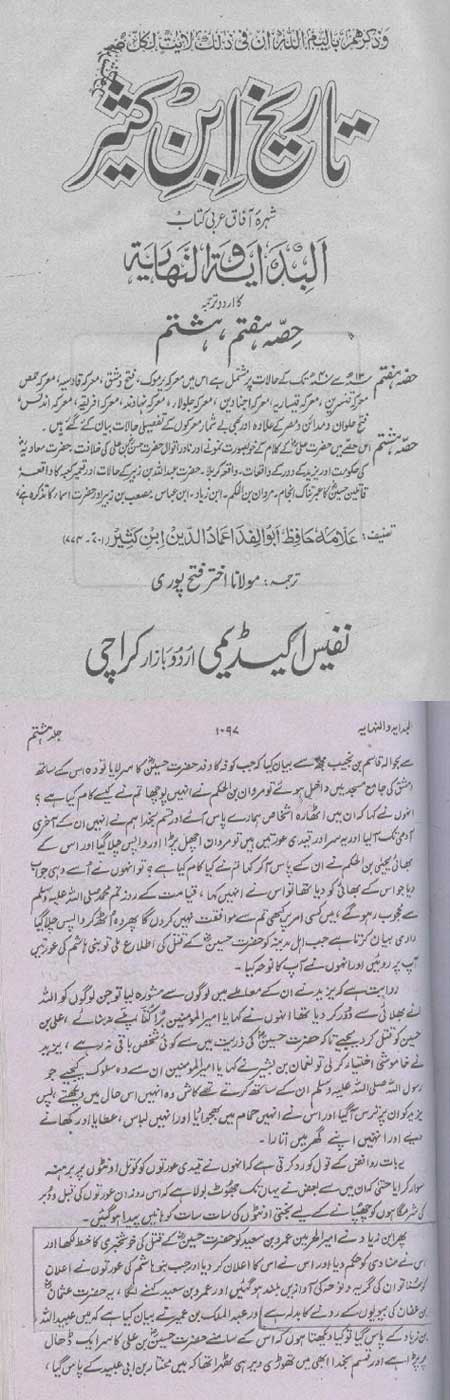 وذكرهم بايام الله ان فى ذلك لايات لكل
تاریخ ابنِ کثیر
شہرۂ آفاق عربی کتاب
البدایۃ والنہایۃ
کا اردو ترجمہ
حِصّہ ہفتم، ہشتم
حصّہ ہفتم تک کے حالات پر مشتمل ہے اس میں معرکہ یرموک، فتح دمشق، معرکہ قادسیہ، معرکہ حمص
معرکہ قنسرین، معرکہ قیساریہ، معرکہ اجنادین، معرکہ جلولاء، معرکہ نہاوند، معرکہ افریقہ، معرکہ اندلس،
فتح حلوان و مدائن و مصر کے علاوہ اور بھی بے شمار معرکوں کے تفصیلی حالات بیان کئے گئے ہیں۔
حصّہ ہشتم اس حصّے میں حضرت علی کے کلام کے خوبصورت نمونے اور نادر اقوال حضرت حسن بن علی کی خلافت، حضرت معاویہ
کی حکومت اور یزید کے دور کے واقعات، واقعہ کربلا، حضرت عبداللہ بن زبیر کے حالات اور تعمیر کعبہ کا واقعہ
قاتلین حسین کا عبرتناک انجام، مروان بن الحکم، ابن زیاد، ابن عباس، مصعب بن زبیر اور حضرت اسماء کا تذکرہ ہے
تصنیف: علامہ حافظ ابوالفدا عماد الدین ابن کثیر (۷۰۱-۷۷۴)
ترجمہ: مولانا اختر فتح پوری
نفیس اکیڈیمی اردو بازار کراچی
البدایہ والنہایہ ۱۰۹۷ جلد ہشتم
سے بحوالہ قاسم بن نجیب بیان کیا کہ جب کوفہ کا وفد حضرت حسین کا سر لایا تو وہ اس کے ساتھ
دمشق کی جامع مسجد میں داخل ہوئے تو مروان بن الحکم نے انہیں پوچھا تم نے کیسے کام کیا ہے؟
انہوں نے کہا کہ ان میں اٹھارہ اشخاص ہمارے پاس آئے اور قسم بخدا ہم نے انہیں ان کے آخری
آدمی تک آ لیا اور یہ سر اور قیدی عورتیں ہیں تو مروان اچھل پڑا اور واپس چلا گیا اور اس کے
بھائی یحییٰ بن الحکم نے ان کے پاس آ کر کہا تم نے کیا کام کیا ہے؟ تو انہوں نے اُسے وہی جواب
دیا جو اس کے بھائی کو دیا تھا تو اس نے انہیں کہا، قیامت کے روز تم محمد صلی اللہ علیہ وسلم
سے محجوب رہو گے، میں کسی امر میں کبھی تم سے موافقت نہیں کروں گا پھر وہ اُٹھ کر واپس چلا گیا
راوی بیان کرتا ہے جب اہل مدینہ کو حضرت حسین کے قتل کی اطلاع ملی تو بنی ہاشم کی عورتیں
آپ پر روئیں اور انہوں نے آپ کا نوحہ کیا۔
روایت ہے کہ یزید نے ان کے معاملے میں لوگوں سے مشورہ لیا تو جن لوگوں کو اللہ
نے بھلائی سے دُور کر دیا تھا انہوں نے کہا یا امیر المومنین بُرا کتّا بچے نہ بنائے، علی بن
حسین کو قتل کر دیجیے تاکہ حضرت حسین کی ذریت میں سے کوئی شخص باقی نہ رہے، یزید
نے خاموشی اختیار کر لی تو نعمان بن بشیر نے کہا یا امیر المومنین ان سے وہ سلوک کیجیے جو
رسول اللہ صلی اللہ علیہ وسلم ان کے ساتھ کرتے تھے کاش وہ انہیں اس حال میں دیکھتے، پس
یزید کو ان پر ترس آ گیا اور اس نے انہیں حمام میں بھجوایا اور انہیں لباس، عطایا اور کھانے
دیے اور انہیں اپنے گھر میں اُتارا۔
یہ بات روافض کے قول کو رد کرتی ہے کہ انہوں نے قیدی عورتوں کو کوتل اونٹوں پر برہنہ
سوار کرایا حتیٰ کہ ان میں سے بعض نے یہاں تک جھوٹ بولا ہے کہ اس روز ان عورتوں کی قبل و دبر
کی شرمگاہوں کو چھپانے کے لیے بختی اونٹوں کی سات سات کوہانیں پیدا ہو گئیں۔
پھر ابن زیاد نے امیر الحرمین عمرو بن سعید کو حضرت حسین کے قتل کی خوشخبری کا خط لکھا اور
اس نے منادی کو حکم دیا اور اس نے اس کا اعلان کر دیا اور جب بنو ہاشم کی عورتوں نے اعلان
کو سُنا تو ان کی گریہ و نوحہ کی آوازیں بلند ہو گئیں اور عمرو بن سعید کہنے لگا، یہ حضرت عثمان
بن عفان کی بیویوں کے رونے کا بدلہ ہے اور عبدالملک بن عمیر نے بیان کیا ہے کہ میں عبیداللہ
بن زیاد کے پاس گیا تو کیا دیکھتا ہوں کہ اس کے سامنے حضرت حسین بن علی کا سر ایک ڈھال
پر پڑا ہے اور قسم بخدا ابھی میں تھوڑی دیر ہی ٹھہرا تھا کہ میں مختار بن ابی عبید کے پاس گیا،